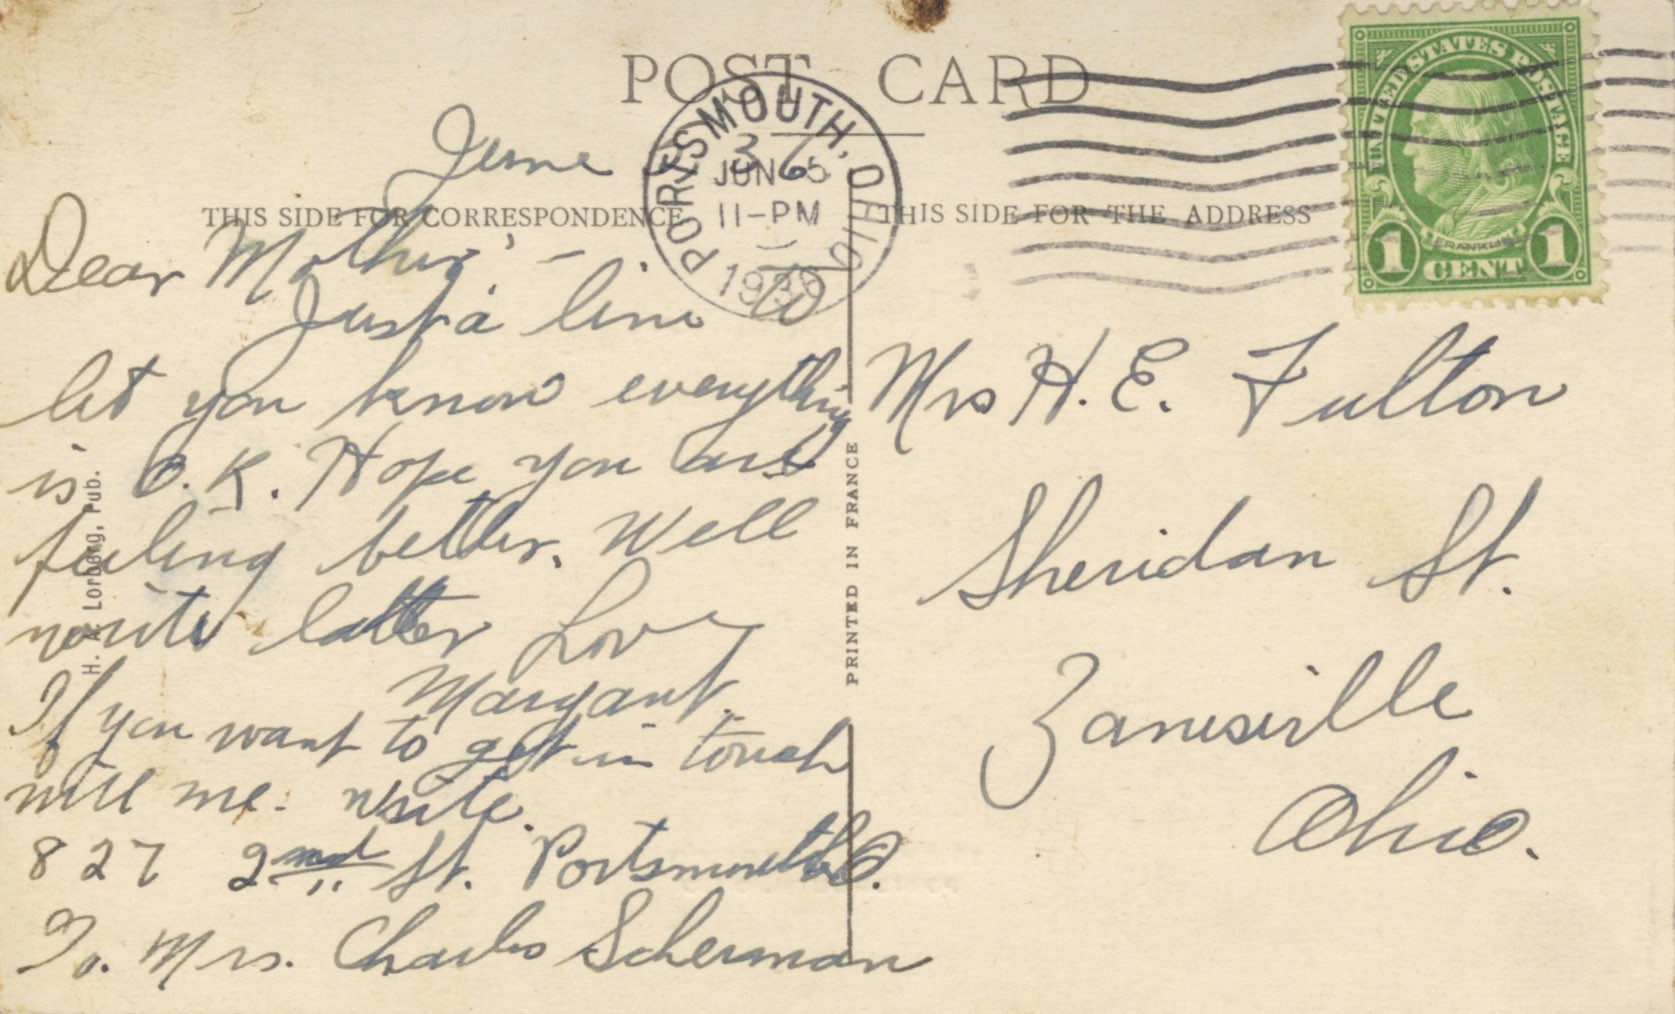 POST CARD
THIS SIDE FOR CORRESPONDENCE
THIS SIDE FOR THE ADDRESS
PORTSMOUTH, OHIO
JUN 5
11-PM
UNITED STATES POSTAGE
FRANKLIN
1 CENT 1
June
Dear Mother' -
Just a line to
let you know everything
is O.K. Hope you are
feeling better. Well
write latter Love
Margaret.
If you want to get in touch
will me. write.
827 2nd St. Portsmouth O.
To. Mrs. Charles Scherman
H. A. Lorberg, Pub.
PRINTED IN FRANCE
Mrs H. E. Fulton
Sheridan St.
Zanesville
Ohio.